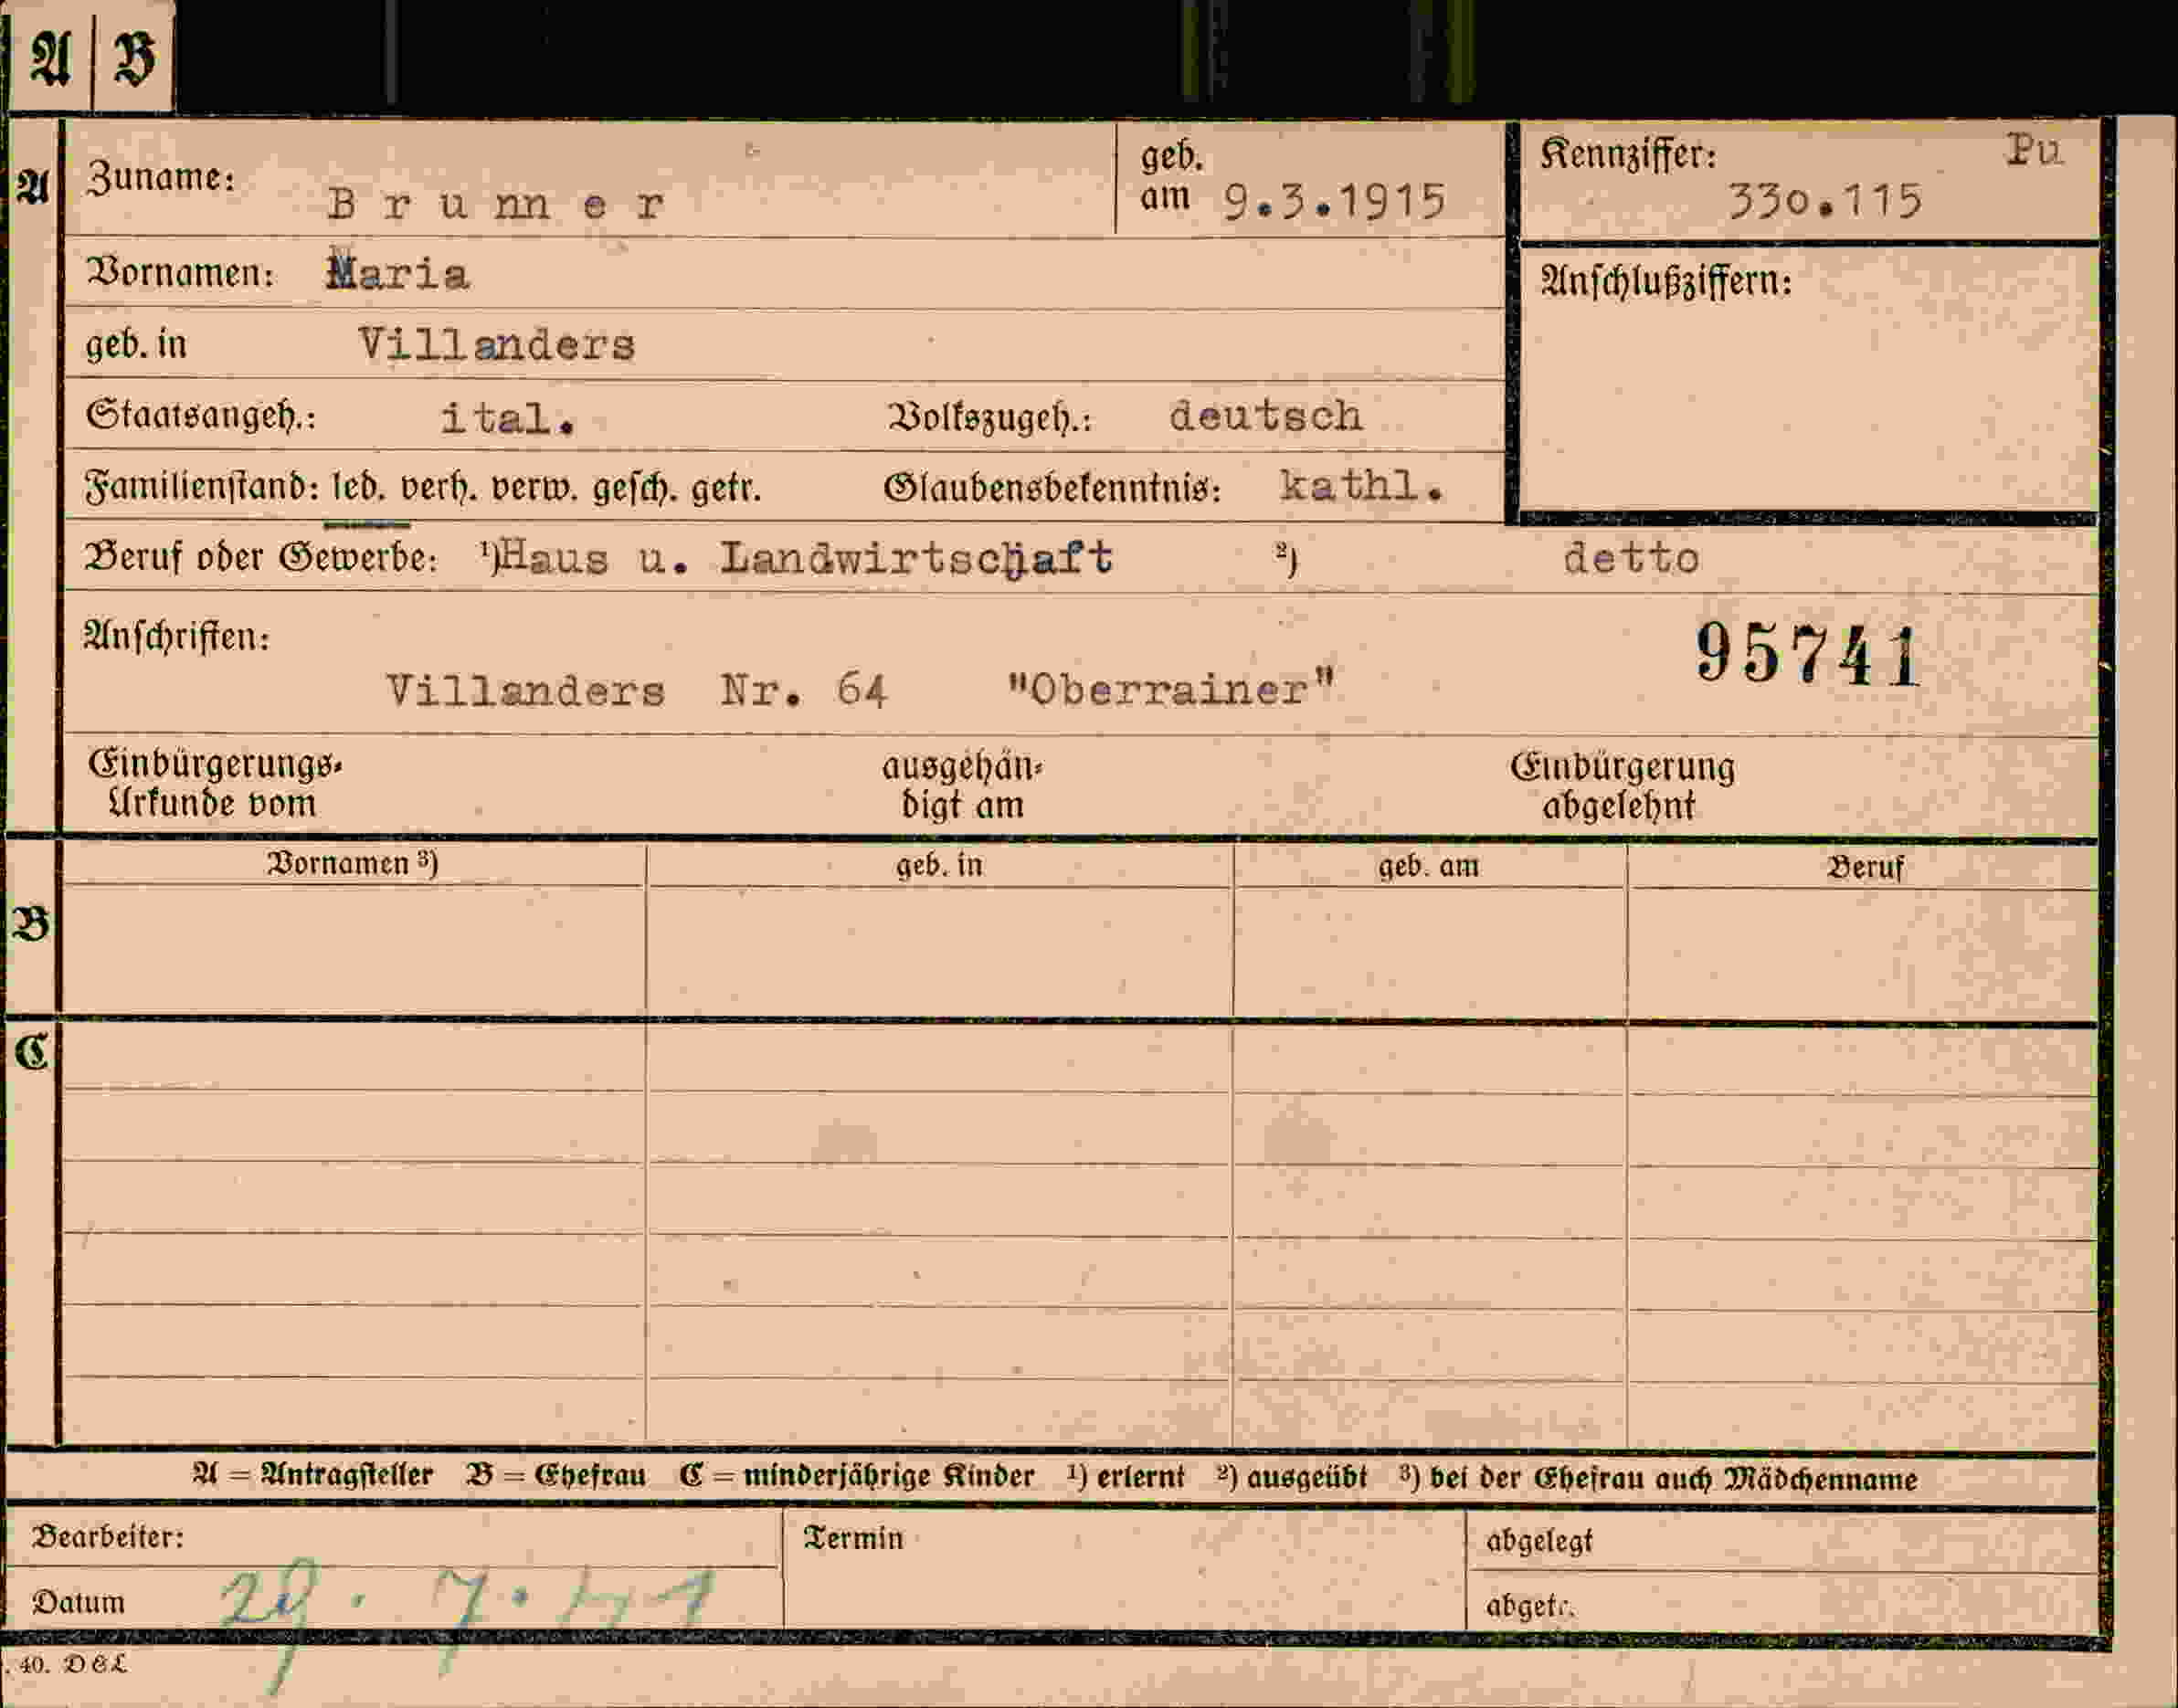 A B
A
Zuname: Brunner
geb. am 9.3.1915
Kennziffer: Pu
330.115
Vornamen: Maria
Anschlußziffern:
geb. in Villanders
Staatsangeh.: ital. Volkszugeh.: deutsch
Familienstand: led. verh. verw. gesch. getr. Glaubensbekenntnis: kathl.
Beruf oder Gewerbe: ¹) Haus u. Landwirtschaft ²) detto
Anschriften: 95741
Villanders Nr. 64 "Oberrainer"
Einbürgerungs- ausgehän- Einbürgerung
Urkunde vom digt am abgelehnt
Vornamen ³) geb. in geb. am Beruf
B
C
A = Antragsteller B = Ehefrau C = minderjährige Kinder ¹) erlernt ²) ausgeübt ³) bei der Ehefrau auch Mädchenname
Bearbeiter: Termin abgelegt
Datum 29. 7. 41 abgetr.
. 40. D&L